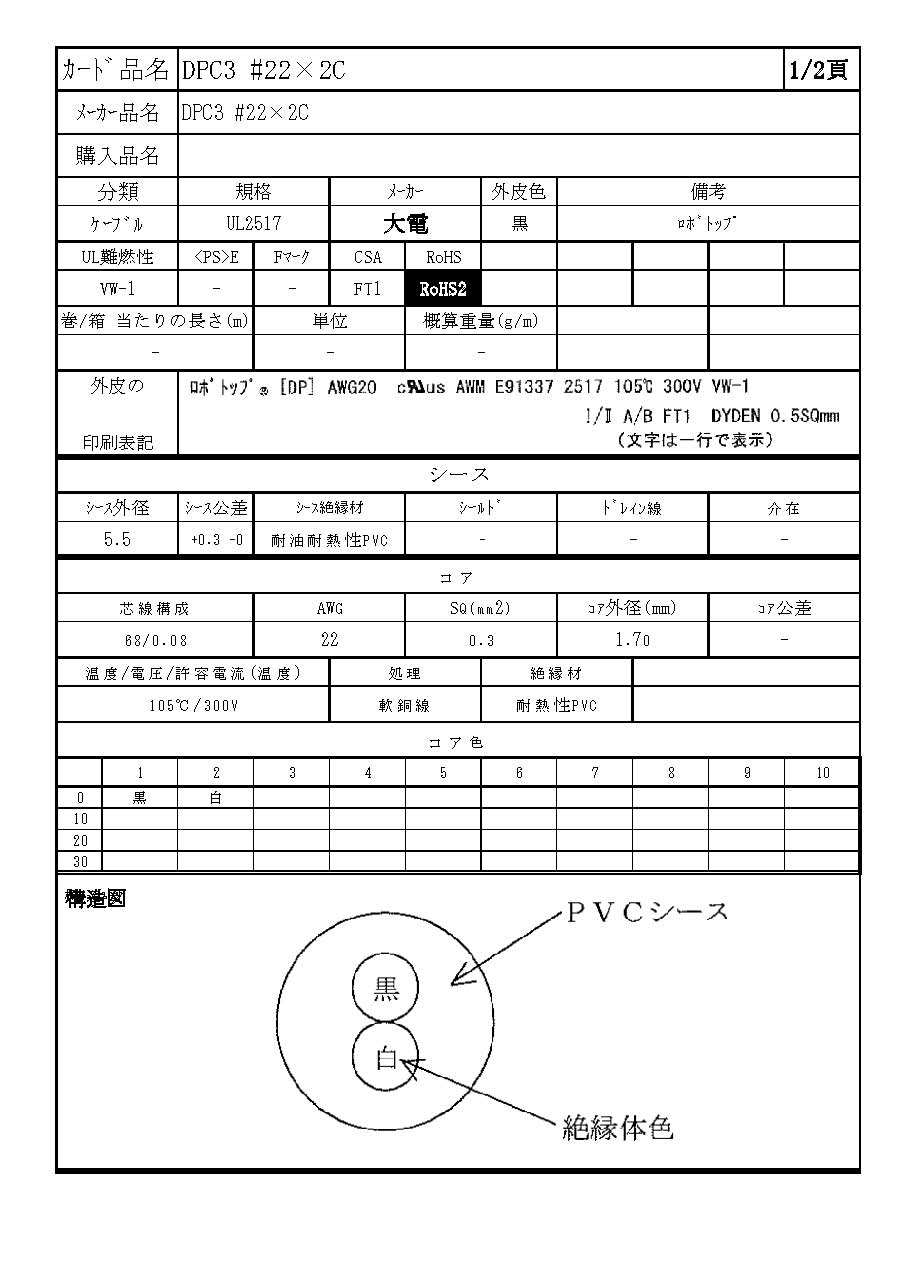 ｶｰﾄﾞ品名 DPC3 #22×2C 1/2頁
ﾒｰｶｰ品名 DPC3 #22×2C
購入品名
分類 規格 ﾒｰｶｰ 外皮色 備考
ｹｰﾌﾞﾙ UL2517 大電 黒 ﾛﾎﾞﾄｯﾌﾟ
UL難燃性 <PS>E Fﾏｰｸ CSA RoHS
VW-1 - - FT1 RoHS2
巻/箱 当たりの長さ(m) 単位 概算重量(g/m)
- - -
外皮の ﾛﾎﾞﾄｯﾌﾟ® [DP] AWG20 cRUus AWM E91337 2517 105℃ 300V VW-1
I/Ⅱ A/B FT1 DYDEN 0.5SQmm
印刷表記 (文字は一行で表示)
シース
ｼｰｽ外径 ｼｰｽ公差 ｼｰｽ絶縁材 ｼｰﾙﾄﾞ ﾄﾞﾚｲﾝ線 介在
5.5 +0.3 -0 耐油耐熱性PVC - - -
コア
芯線構成 AWG SQ(mm2) ｺｱ外径(mm) ｺｱ公差
68/0.08 22 0.3 1.70 -
温度/電圧/許容電流(温度) 処理 絶縁材
105℃/300V 軟銅線 耐熱性PVC
コア色
1 2 3 4 5 6 7 8 9 10
0 黒 白
10
20
30
構造図
PVCシース
黒
白
絶縁体色